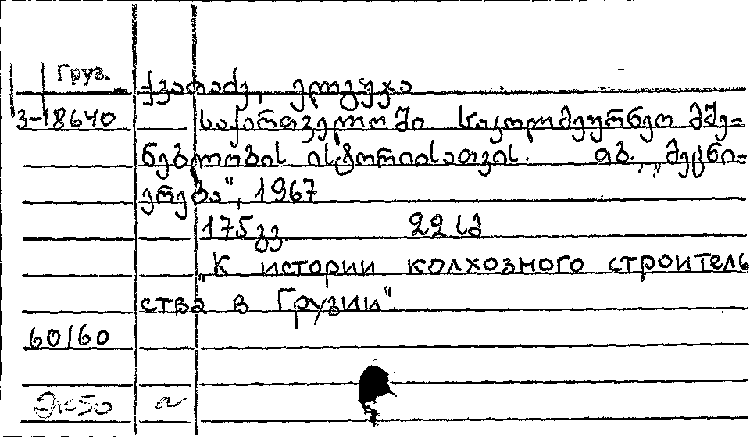 Груз.
3-18640
საქართველოში საკოლმეურნეო მშე-
ნებლობის ისტორიისათვის. თბ. „მეცნი-
ერება", 1967
175 გვ 22 სმ
„К истории колхозного строитель
ства в Грузии"
60/60